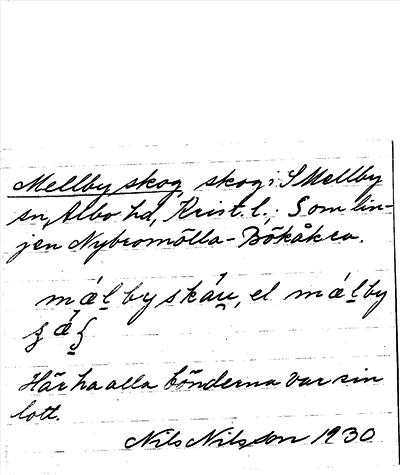 Mellby skog, skog i S Mellby
sn, Albo hd, Krist. l.; S om lin-
jen Nybromölla - Bökåkra.
mǽlby skáu, el mǽlby
Här ha alla bönderna var sin
lott.
Nils Nilsson 1930